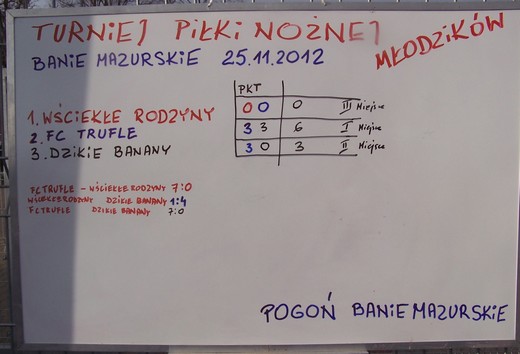 TURNIEJ PIŁKI NOŻNEJ
MŁODZIKÓW
BANIE MAZURSKIE 25.11.2012
PKT
1. WŚCIEKŁE RODZYNY 0 0 0 III Miejsce
2. FC TRUFLE 3 3 6 I Miejsce
3. DZIKIE BANANY 3 0 3 II Miejsce
FC TRUFLE - WŚCIEKŁE RODZYNY 7:0
WŚCIEKŁE RODZYNY DZIKIE BANANY 1:4
FC TRUFLE DZIKIE BANANY 7:0
POGOŃ BANIE MAZURSKIE